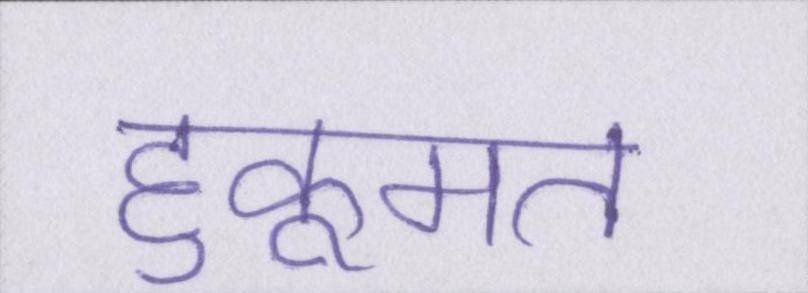 हुकूमत